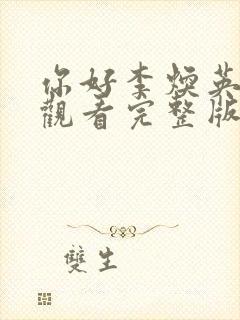 你好李煥英
觀看完整版
雙生